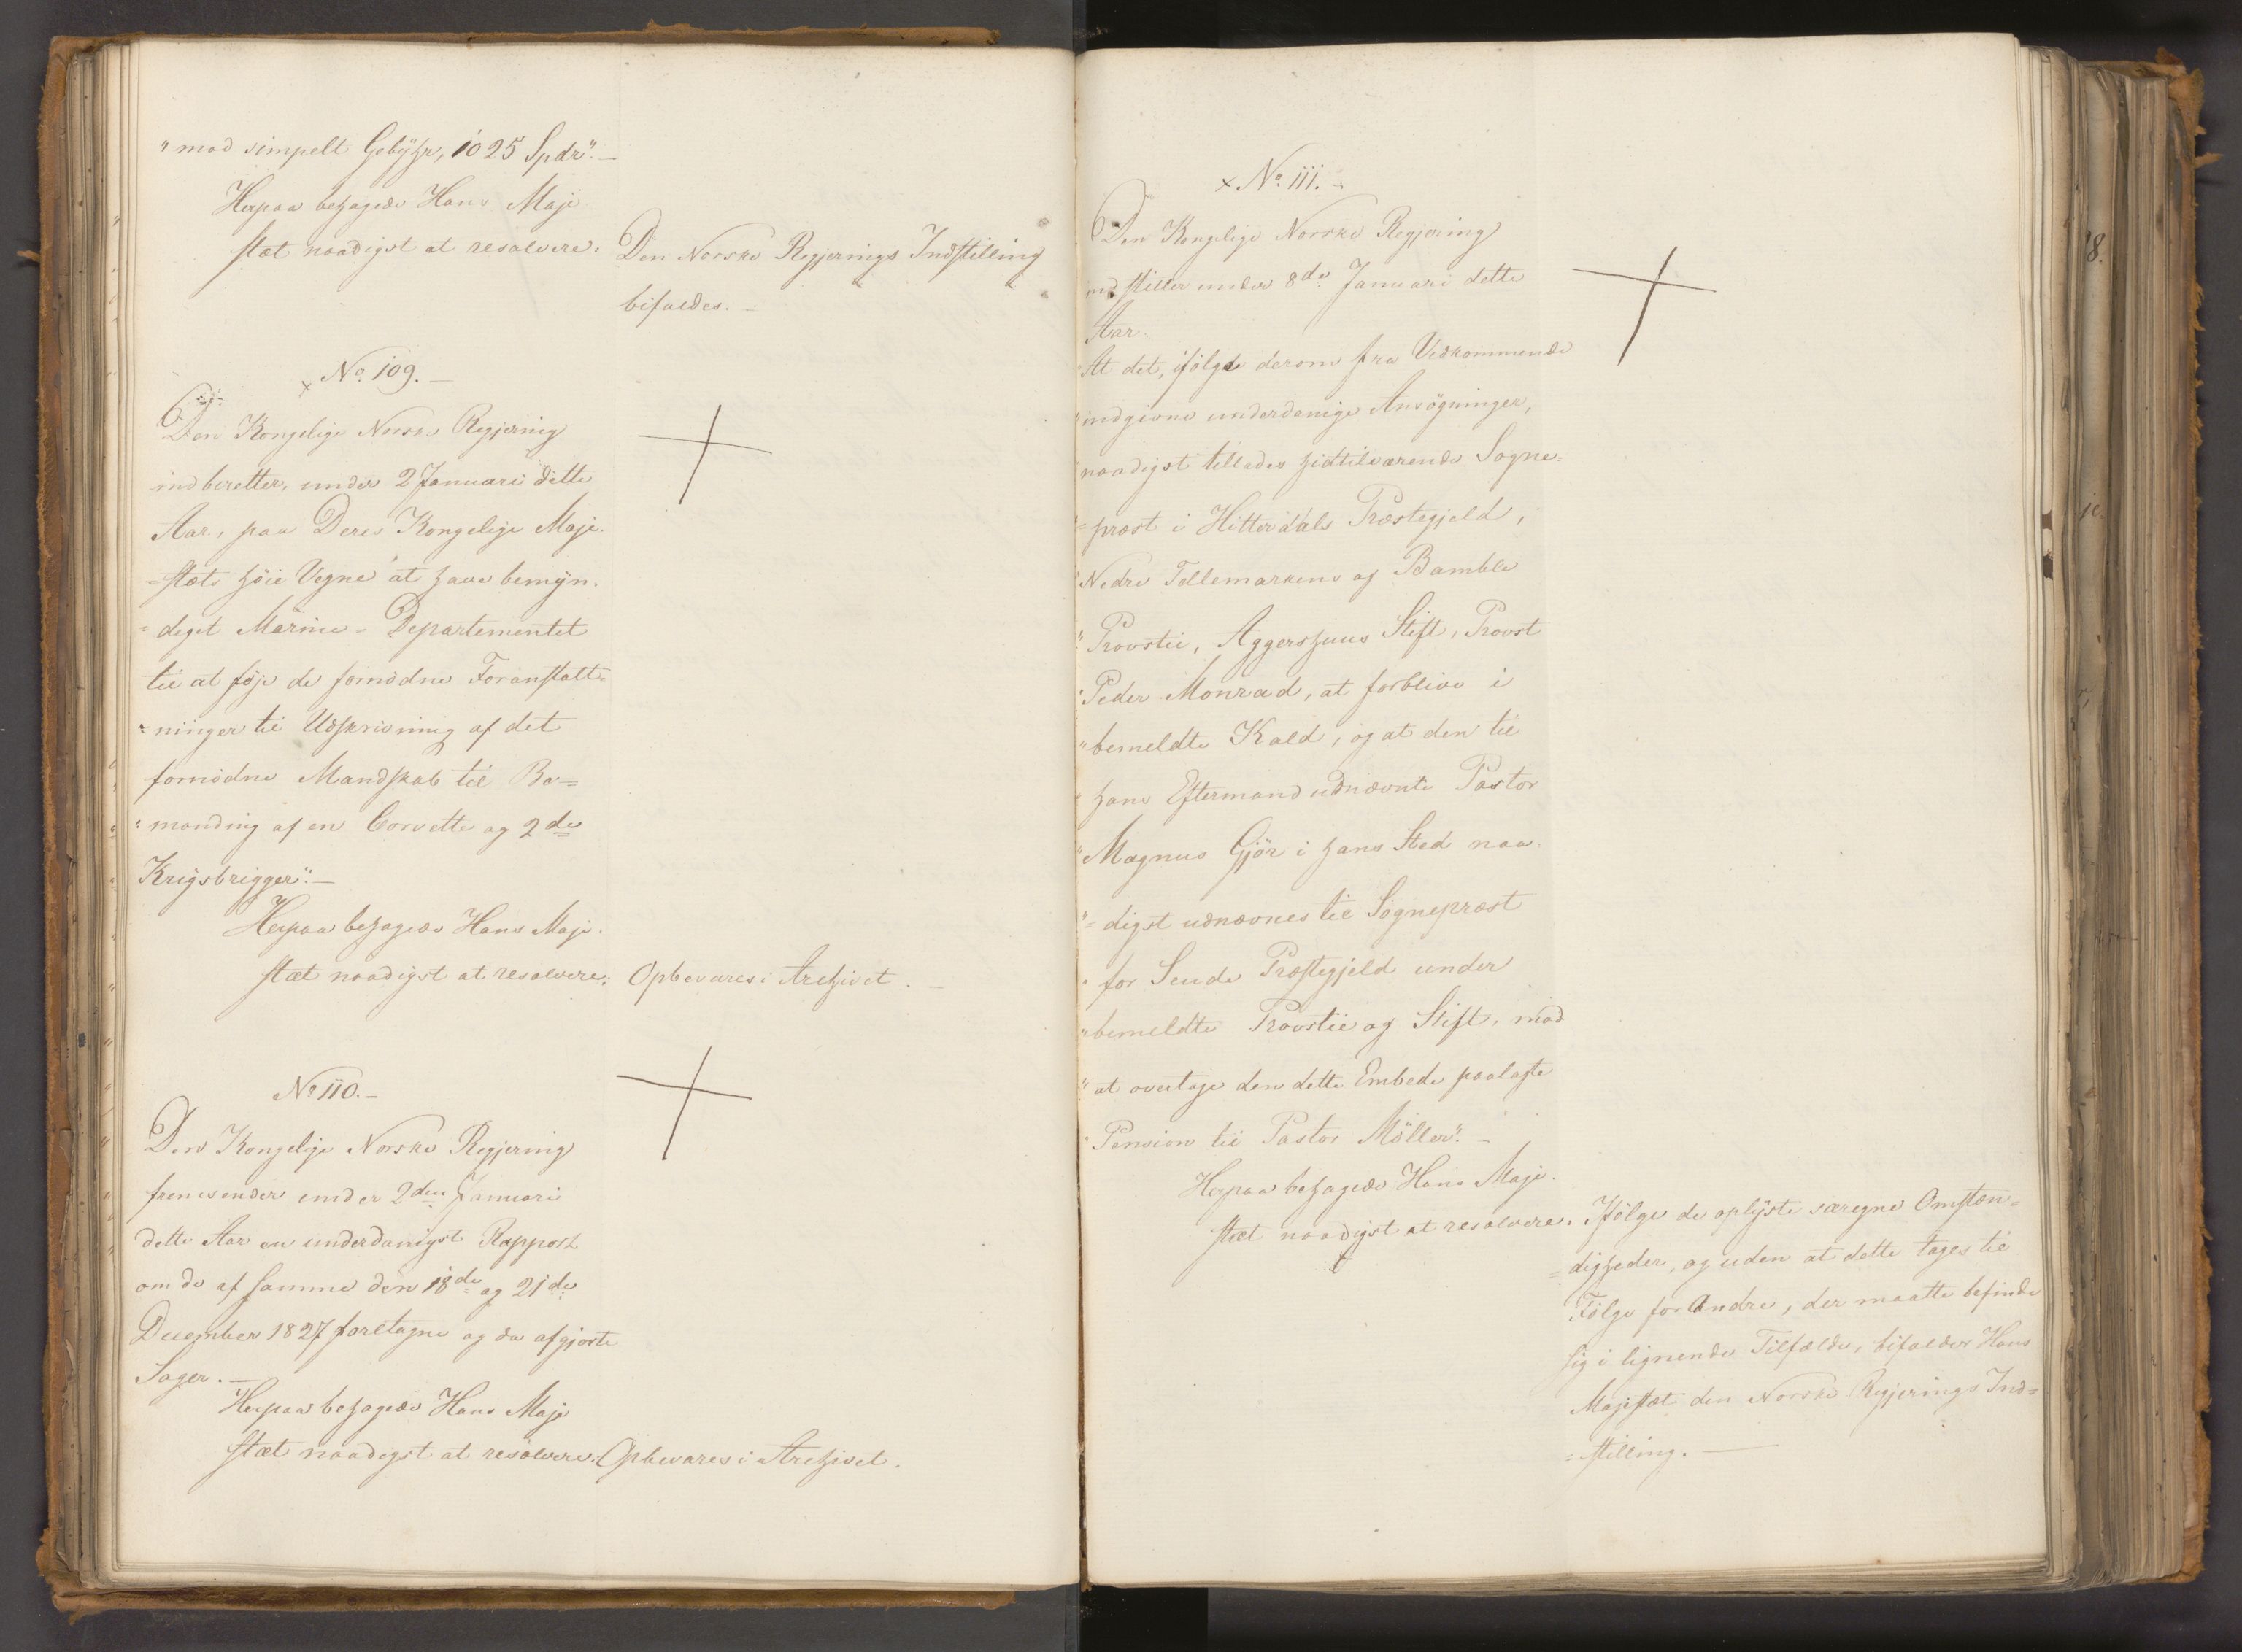 "mod simpelt Gebyhr, 1025 Spdr". —
Herpaa behagede Hans Maje
stæt naadigst at resolvere:
Den Norske Regjerings Indstilling
bifaldes. —
× No. 109. —
Den Kongelige Norske Regjering
indberetter, under 2 Januari dette
Aar, paa Deres Kongelige Maje-
=stæts höie Vegne at have bemyn-
=diget Marine-Departementet
til at föje de fornödne Foranstalt=
=ninger til Udskrivning af det
fornödne Mandskab til Be=
=manding af en Corvette og 2de
Krigsbrigger". —
Herpaa behagede Hans Maje-
stæt naadigst at resolvere:
Opbevares i Archivet. —
No 110. —
Den Kongelige Norske Regjering
fremsender under 2den Januari
dette Aar en underdanigst Rapport
om de af samme den 18de og 21de
December 1827 foretagne og da afgjorte
Sager. —
Herpaa behagede Hans Maje
stæt naadigst at resolvere:
Opbevares i Archivet.
× No. 111. —
Den Kongelige Norske Regjering
indstiller under 8de Januari dette
Aar
"At det, ifölge derom fra Vedkommende
"indgivne underdanige Ansögninger,
"naadigst tillades hidtilværende Sogne-
"=præst i Hitterdals Præstegjeld,
"Nedre Tellemarkens og Bamble
"Provstie, Aggershuus Stift, Provst
"Peder Monrad, at forblive i
"bemeldte Kald, og at den til
"hans Eftermand udnævnte Pastor
"Magnus Gjör i hans Sted naa-
"=digst udnævnes til Sognepræst
"for Seude Præstegjeld under
"bemeldte Provstie og Stift, mod
"at overtage den dette Embede paalagte
"Pension til Pastor Möller". —
Herpaa behagede Hans Maje-
stæt naadigst at resolvere.
Ifölge de oplyste særegne Omstæn=
=digheder, og uden at dette tages til
Fölge for Andre, der maatte befinde
sig i lignende Tilfælde, bifalder Hans
Majestæt den Norske Regjerings Ind=
=stilling. —